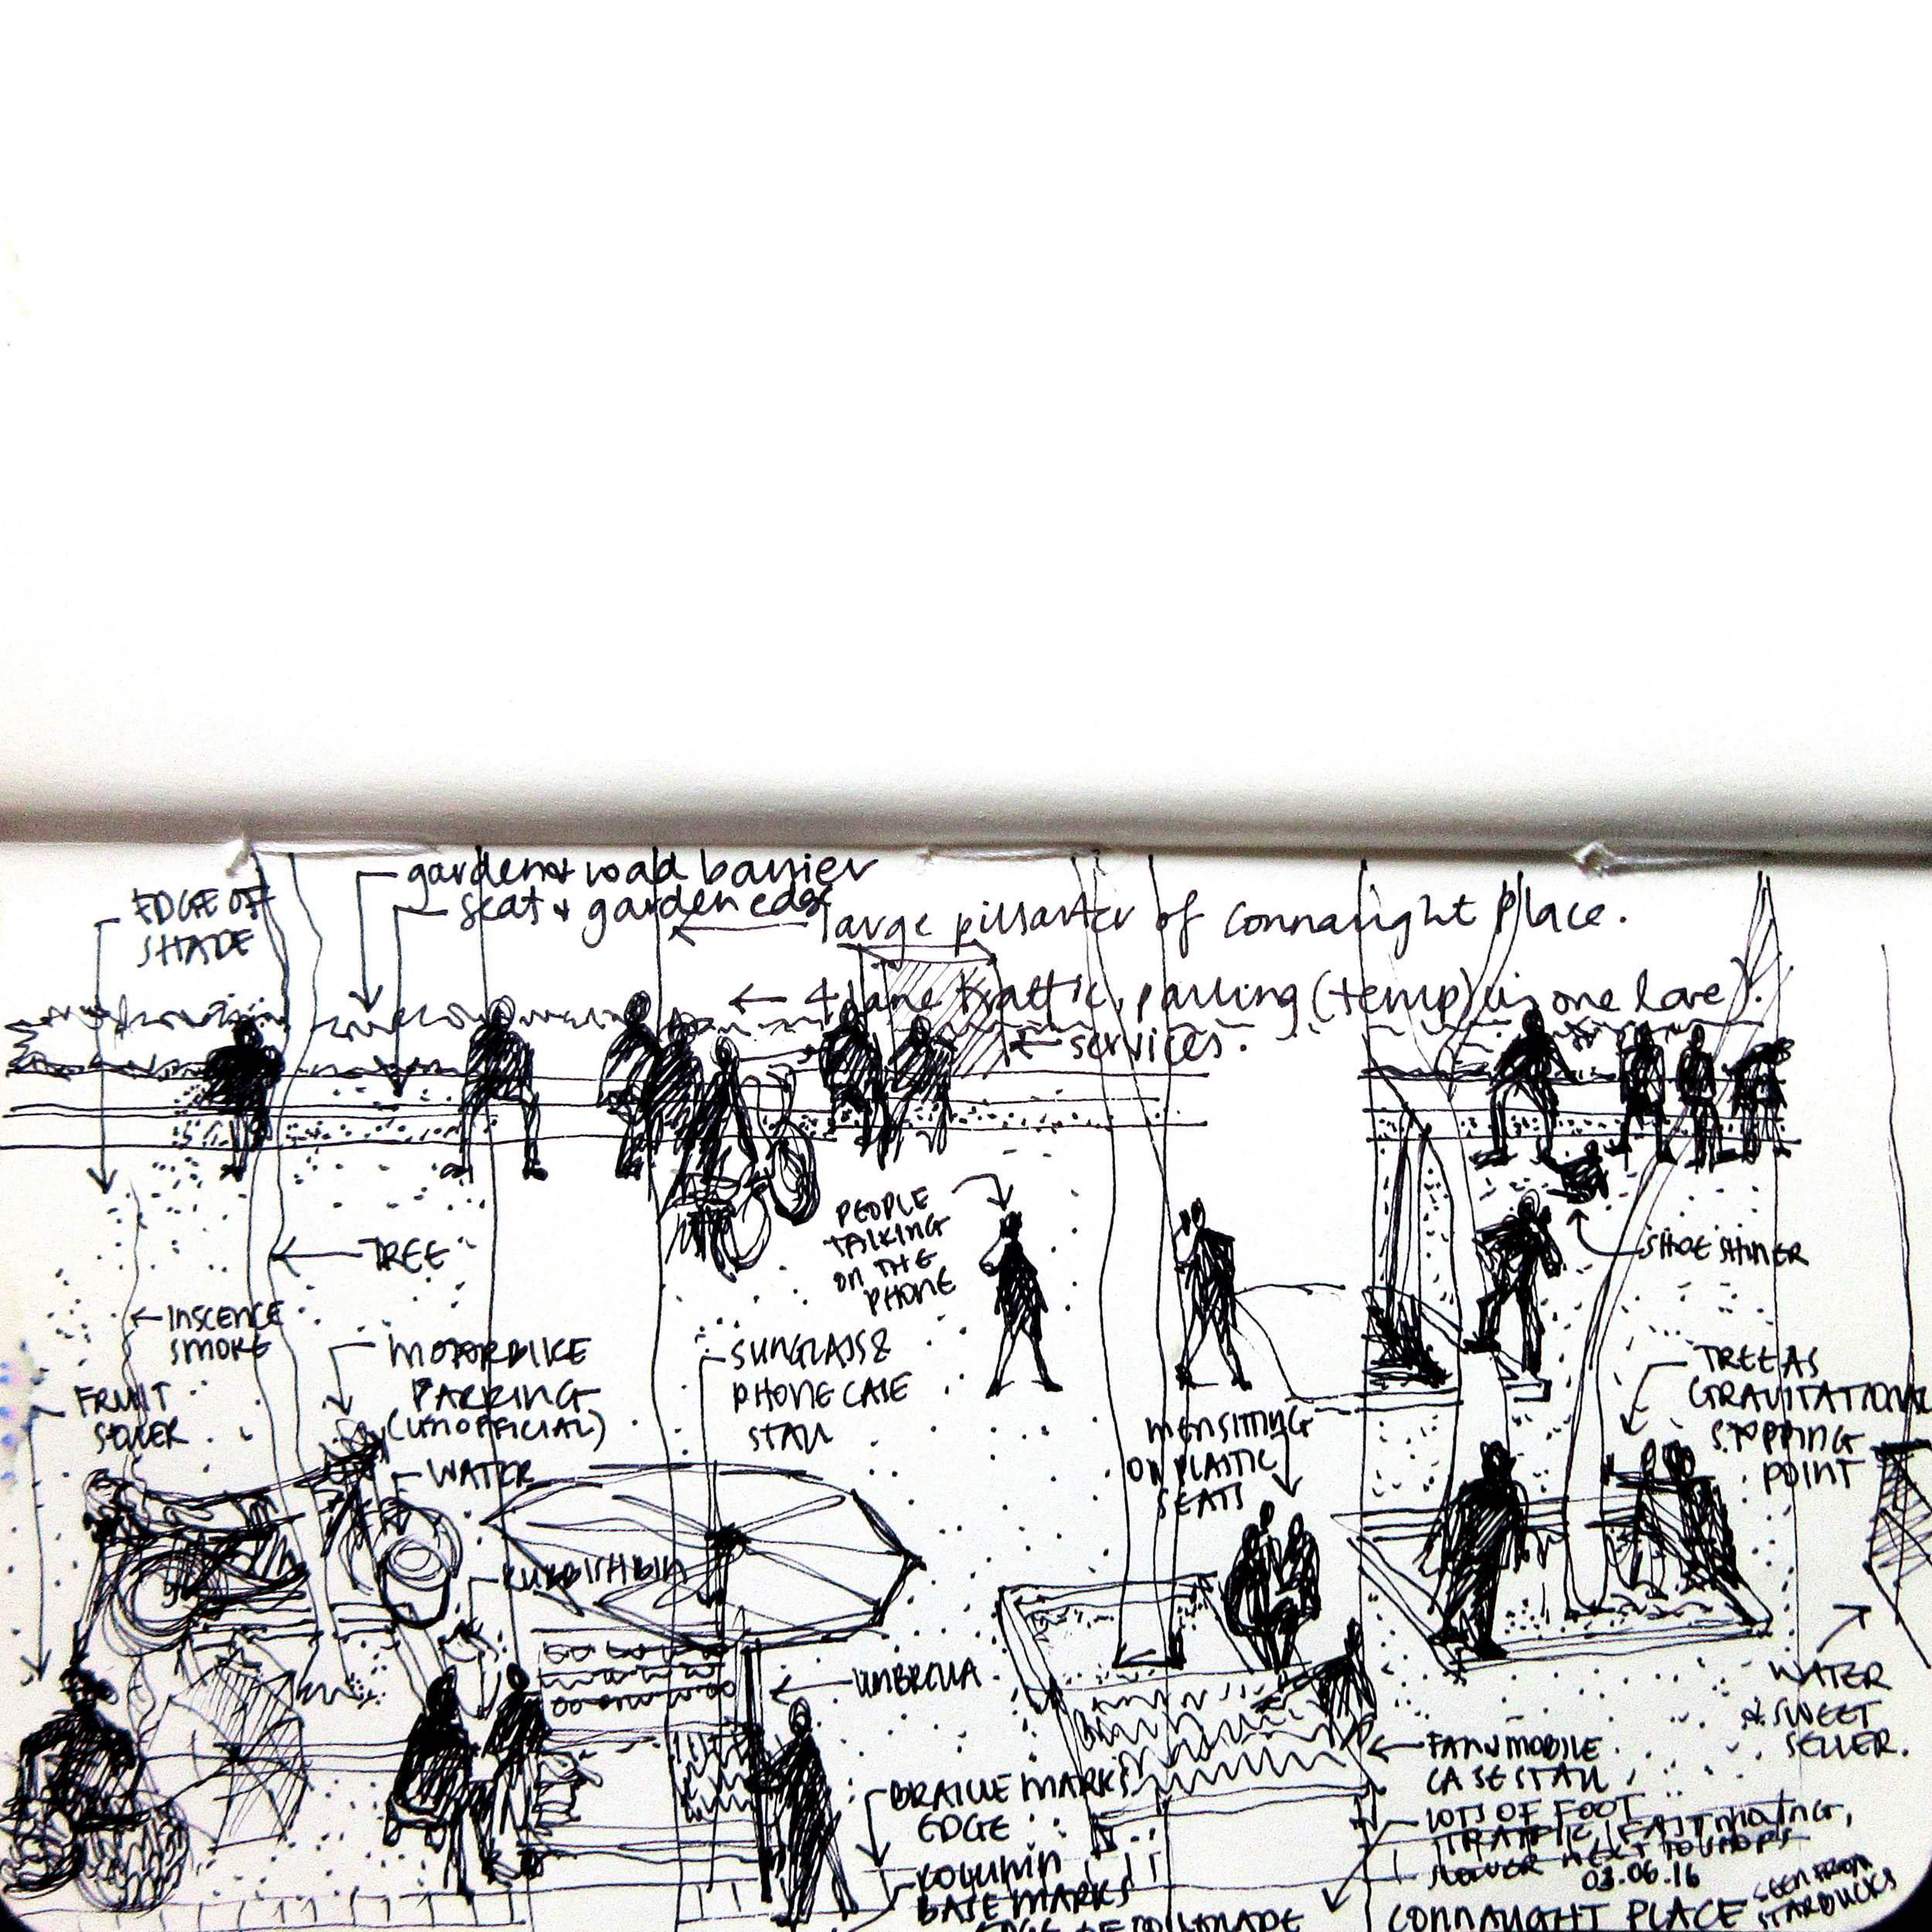 EDGE OF
SHADE
garden & road barrier
seat & garden edge
large pillaster of Connaught Place.
← 4 lane traffic, parking (temp) in one lane).
← services.
PEOPLE
TALKING
ON THE
PHONE
← TREE
SHOE SHINER
← INSCENCE
SMOKE
MOTORBIKE
PARKING
(UNOFFICIAL)
SUNGLASS &
PHONE CASE
STALL
FRUIT
SELLER
← WATER
MEN SITTING
ON PLASTIC
SEATS
TREE AS
GRAVITATIONAL
STOPPING
POINT
RUBBISH BIN
← UMBRELLA
WATER
& SWEET
SELLER.
BRAILLE MARKS
EDGE
KOLUMN
BASE MARKS
EDGE OF COLONNADE
← FAN & MOBILE
CASE STALL
LOTS OF FOOT
TRAFFIC, FAST MOVING,
SLOWER NEXT TO SHOPS
03.06.16
CONNAUGHT PLACE
SEEN FROM
STARBUCKS